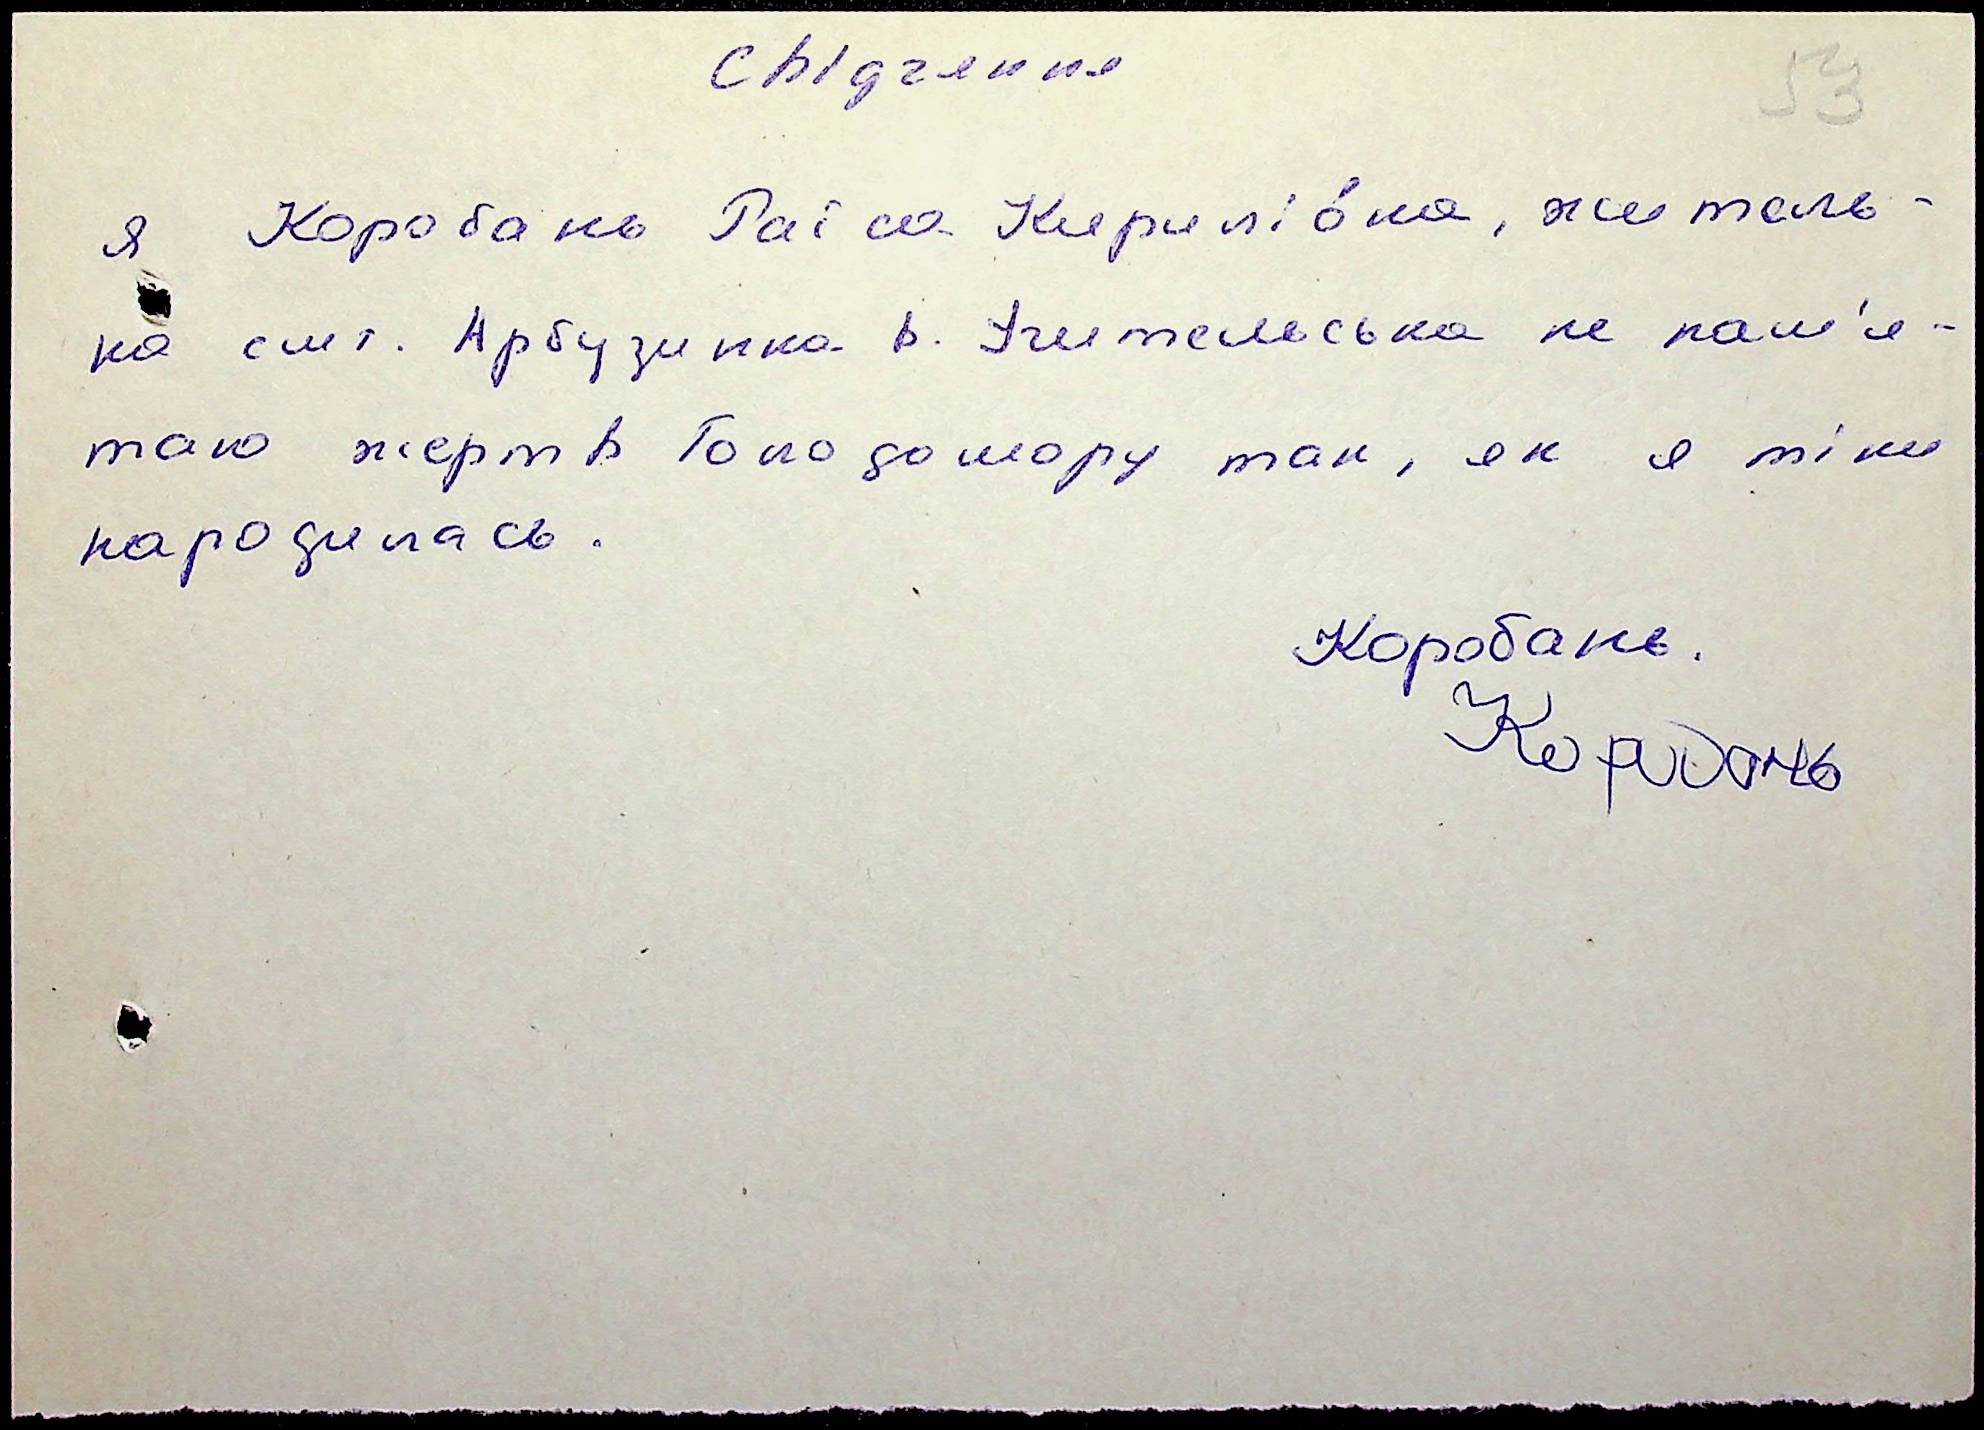 Свідчення
53
я Коробань Раїса Кирилівна, житель-
ка смт. Арбузинка в. Учительська не пам'я-
таю жертв Голодомору так, як я тіки
народилась.
Коробань.
Коробань